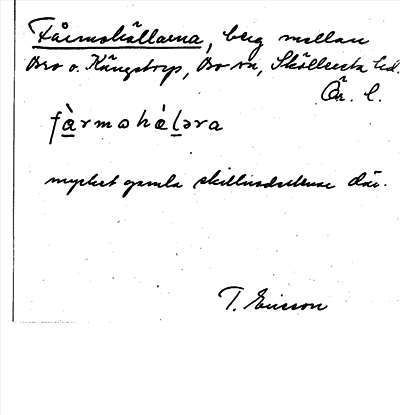 Fårmohällarna, berg mellan
Bro o. Kängstorp, Bo sn, Sköllersta hd.
Ör. l.
fàrmohálǝra
mycket gamla skillnadsstenar där.
T. Ericsson